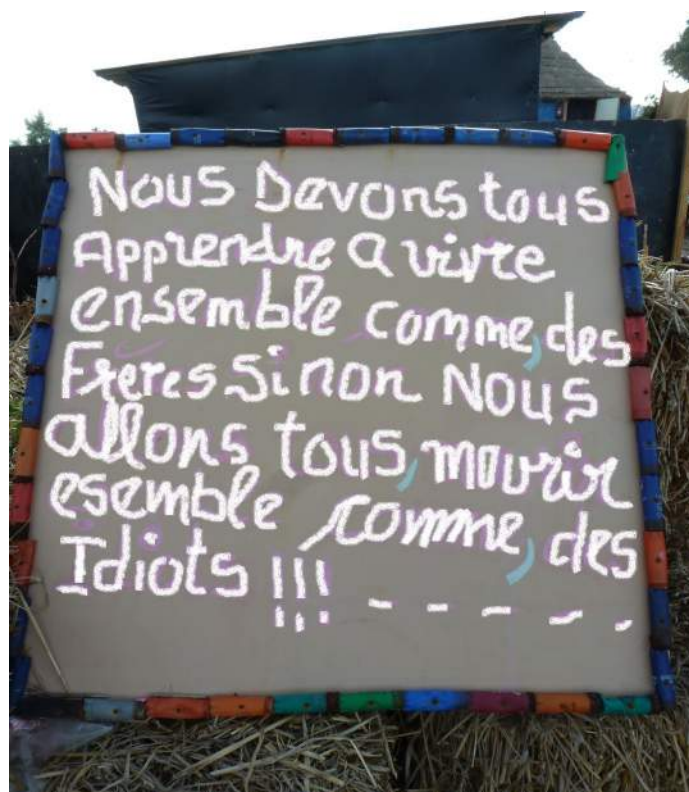 Nous Devons tous
Apprendre a vivre
ensemble comme, des
Freres Si non Nous
allons tous, mourir
esemble comme, des
Idiots !!! - - - - -